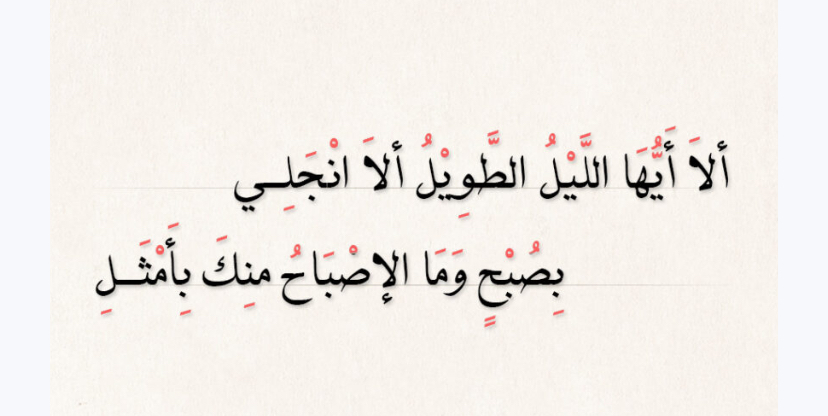 ألاَ أَيُّهَا اللَّيْلُ الطَّوِيْلُ ألاَ انْجَلِــي
بِصُبْحٍ وَمَا الإصْبَاحُ منِكَ بِأَمْثَــلِ